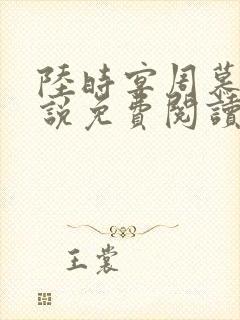 陸時宴周慕
說免費閱讀
王裳